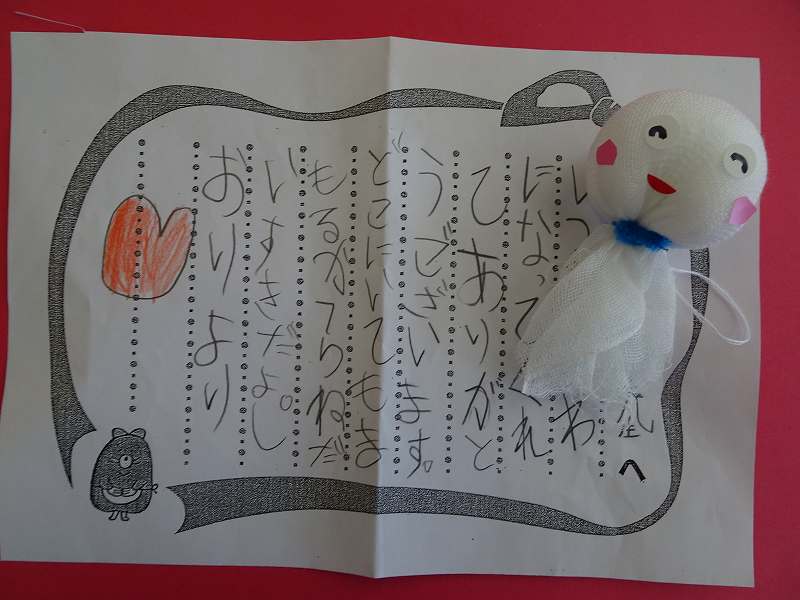 先生へ
いつ わ
になってくれ
ひありがと
うございます。
どこにいてもま
もるからねだ
いすきだよ。し
おりより